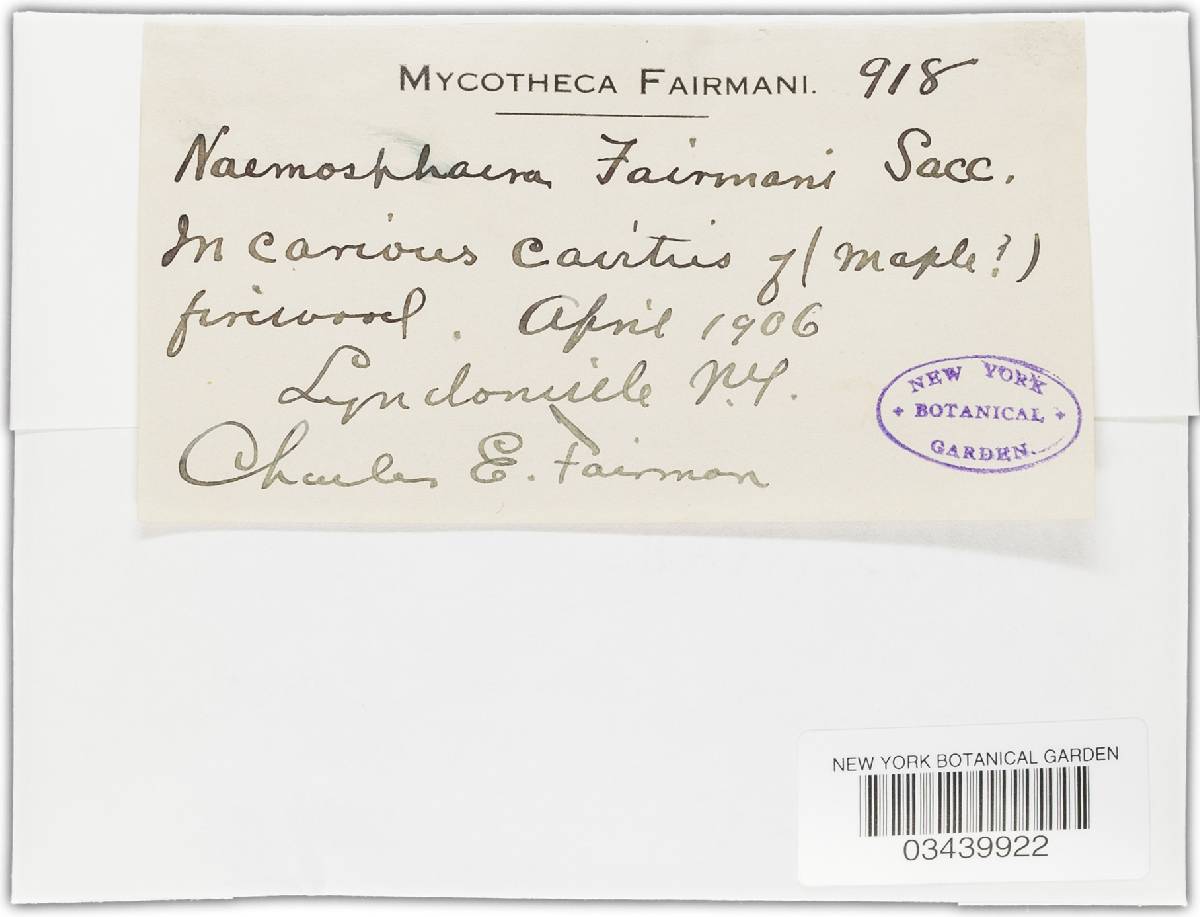 MYCOTHECA FAIRMANI. 918
Naemosphaera Fairmani Sacc.
In carious cavities of (maple?)
firewood. April 1906
Lyndonville N.Y.
Charles E. Fairman
NEW YORK
BOTANICAL
GARDEN.
NEW YORK BOTANICAL GARDEN
03439922